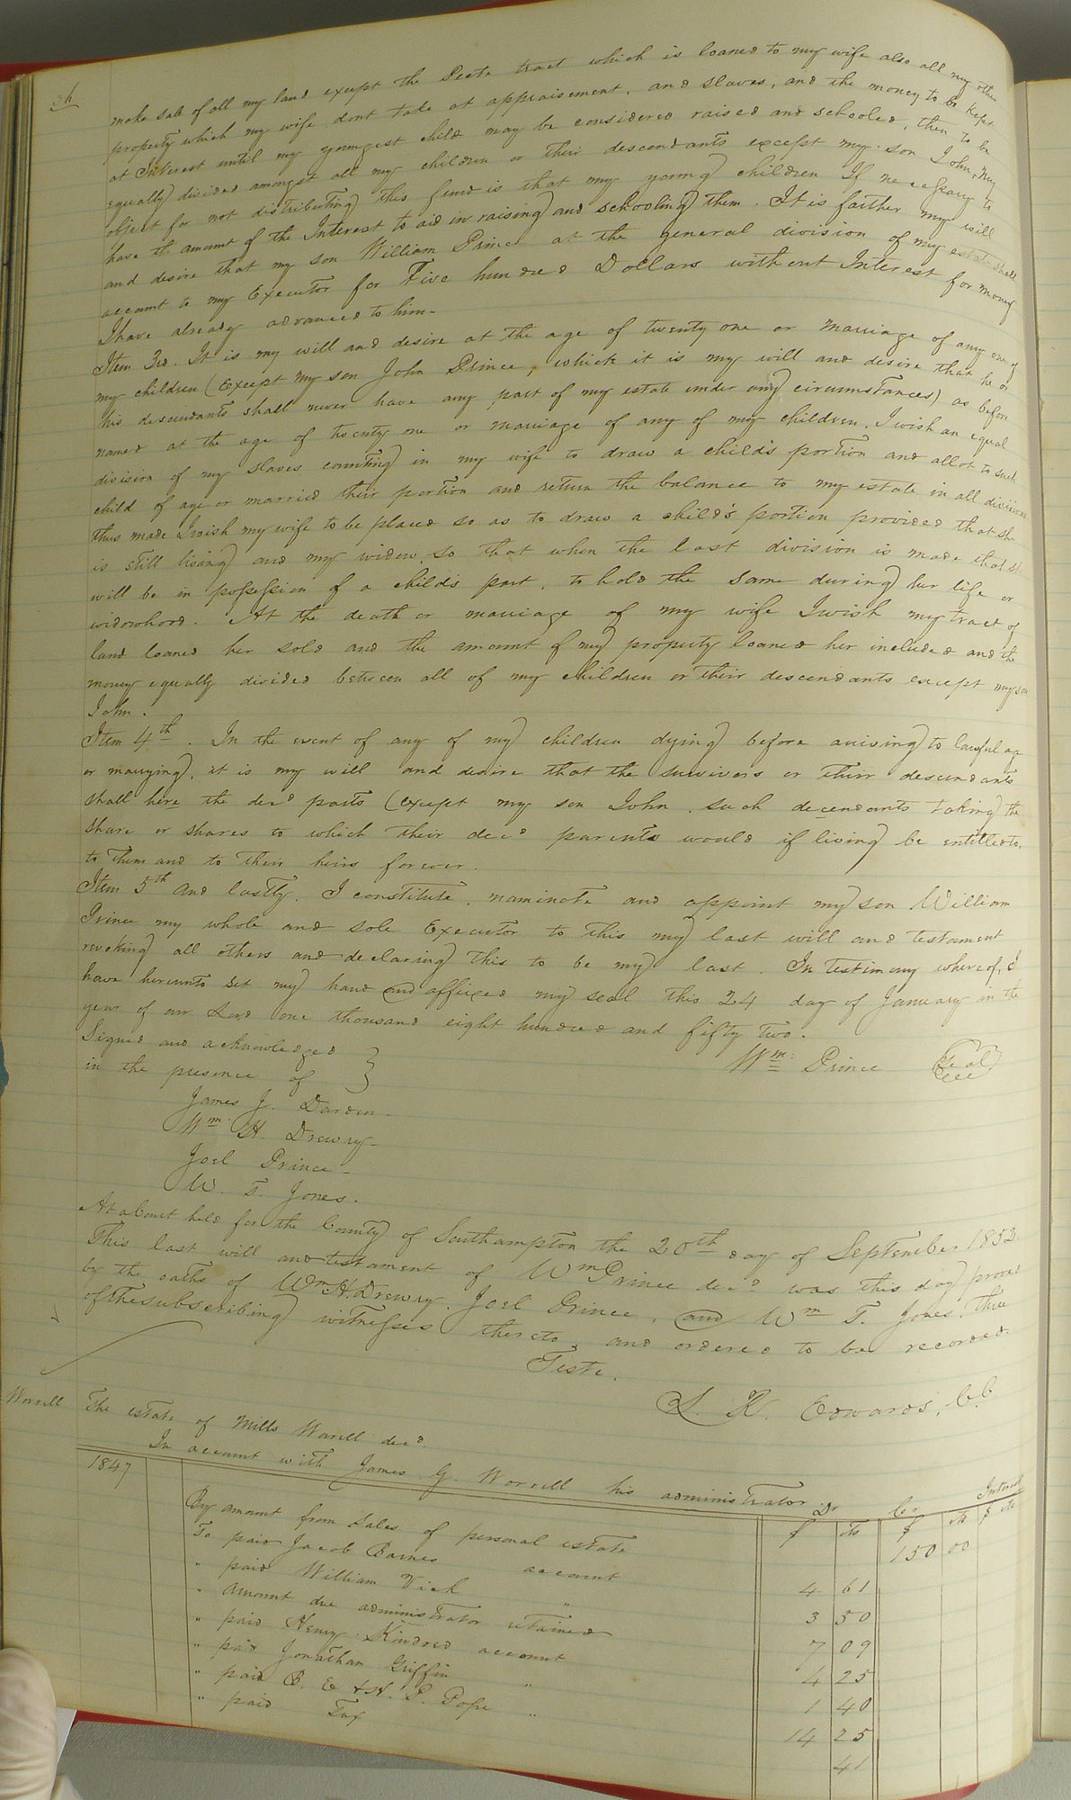 make sale of all my land except the Peete tract which is loaned to my wife also all my other
property which my wife dont take at appraisement, and slaves, and the money to be Kept
at Interest until my youngest child may be considered raised and schooled, then to be
equally divided amongst all my children or their descendants except my son John, my
object for not distributing this fund is that my young children If necessary to
have the amount of the Interest to aid in raising and schooling them. It is farther my will
and desire that my son William Prince at the general division of my estate shall
account to my Executor for Five hundred Dollars without Interest for money
I have already advanced to him.
Item 3rd. It is my will and desire at the age of twenty one or marriage of any one of
my children (Except my son John Prince, which it is my will and desire that he or
his descendants shall never have any part of my estate under any circumstances) as before
named at the age of twenty one or marriage of any of my children, I wish an equal
division of my slaves counting in my wife to draw a child's portion and allot to such
child of age or married their portion and return the balance to my estate in all divisions
thus made I wish my wife to be placed so as to draw a child's portion provided that she
is still living and my widow so that when the last division is made that she
will be in possession of a child's part, to hold the same during her life or
widowhood. At the death or marriage of my wife I wish my tract of
land loaned her sold and the amount of my property loaned her included and the
money equally divided between all of my children or their descendants except my son
John.
Item 4th. In the event of any of my children dying before arising to lawful age
or marrying, it is my will and desire that the survivers or their descendants
shall here the decd parts (except my son John, such decendants taking the
share or shares to which their decd parents would if living be entitled to,
to them and to their heirs forever.
Item 5th and lastly, I constitute, nominate and appoint my son William
Prince my whole and sole Executor to this my last will and testament
revoking all others and declaring this to be my last. In testimony whereof, I
have hereunto set my hand and affixed my seal this 24 day of January in the
year of our Lord one thousand eight hundred and fifty two.
Signed and acknowledged
in the presence of
Wm Prince Seal
James J. Darden
Wm H. Drewry
Joel Prince
W. T. Jones.
At a Court held for the County of Southampton the 20th day of September 1852
This last will and testament of Wm Prince decd was this day proved
by the oaths of Wm H. Drewry, Joel Prince, and Wm T. Jones, three
of the subscribing witnesses thereto, and ordered to be recorded.
Teste.
L. R. Edwards, C.C.
Worrell
The estate of Mills Worrell decd.
In account with James G. Worrell his administrator Dr Cr Interest
1847 $ cts $ cts $ cts
By amount from sales of personal estate 150 00
To paid Jacob Barnes account 4 61
" paid William Vick " 3 50
" Amount due administrator retained 7 09
" paid Henry Kindred account 4 25
" paid Jonathan Griffin " 1 40
" paid B. E & H. P. Pope " 14 25
" paid Tax 41